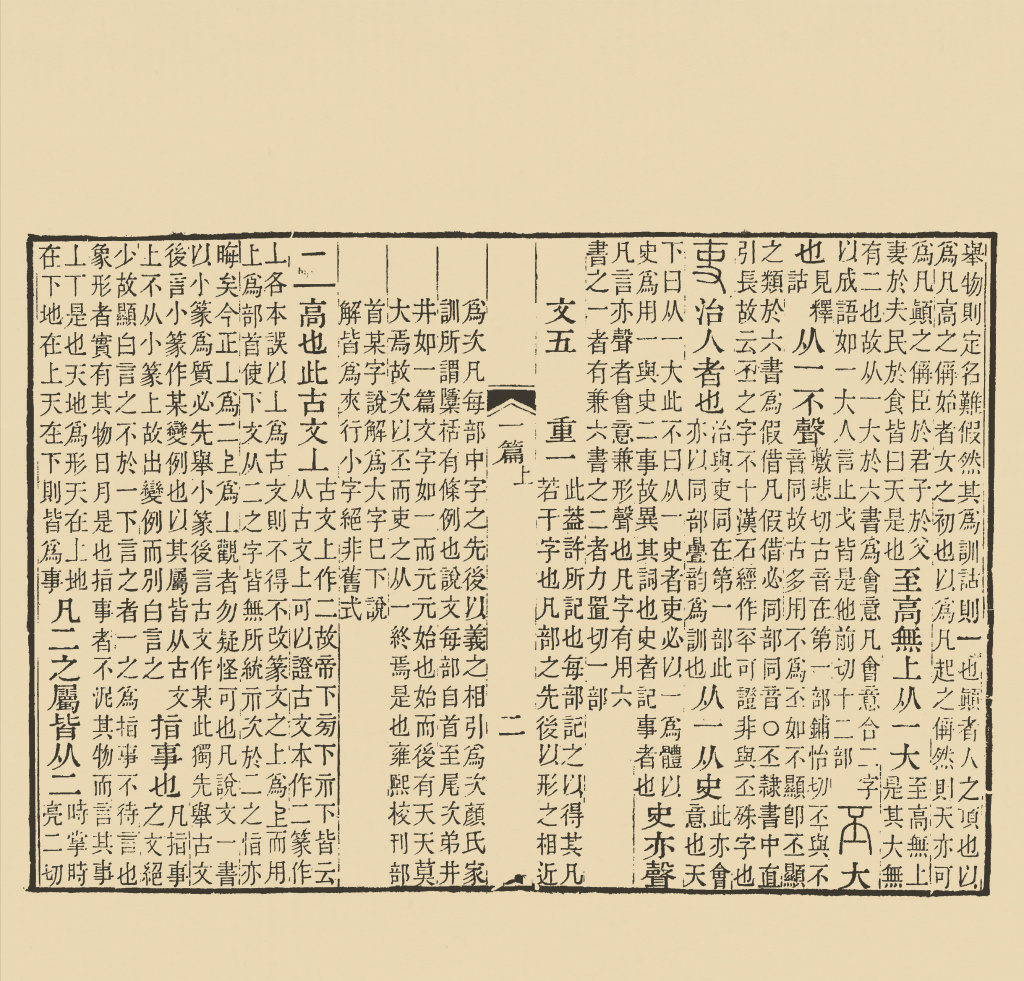 舉物則定名難假然其爲訓詁則一也顚者人之頂也以
爲凡高之偁始者女之初也以爲凡起之偁然則天亦可
爲凡顚之偁臣於君子於父
妻於夫民於食皆曰天是也
至高無上从一大
至高無上
是其大無
有二也故从一大於六書爲會意凡會意合二字
以成語如一大人言止戈皆是他前切十二部
丕大
也
見釋
詁
从一不聲
敷悲切古音在第一部鋪怡切丕與不
音同故古多用不爲丕如不顯卽丕顯
之類於六書爲假借凡假借必同部同音○丕隸書中直
引長故云丕之字不十漢石經作㔻可證非與丕殊字也
吏治人者也
治與吏同在第一部此
亦以同部疊韵爲訓也
从一从史
此亦會
意也天
下曰从一大此不曰从一史者吏必以一爲體以
史爲用一與史二事故異其詞也史者記事者也
史亦聲
凡言亦聲者會意兼形聲也凡字有用六
書之一者有兼六書之二者力置切一部
文五　重一
此葢許所記也每部記之以得其凡
若干字也凡部之先後以形之相近
一篇上　二
爲次凡每部中字之先後以義之相引爲次顏氏家
訓所謂檃栝有條例也說文每部自首至尾次弟井
井如一篇文字如一而元元始也始而後有天天莫
大焉故次以丕而吏之从一終焉是也雍熙校刊部
首某字說解爲大字巳下說
解皆爲夾行小字絕非舊式
二高也此古文丄
古文上作二故帝下㫄下示下皆云
从古文上可以證古文本作二篆作
丄各本誤以丄爲古文則不得不改篆文之上爲𠄞而用
上爲部首使下文从二之字皆無所統示次於二之恉亦
晦矣今正丄爲二𠄞爲丄觀者勿疑怪可也凡說文一書
以小篆爲質必先舉小篆後言古文作某此獨先舉古文
後言小篆作某變例也以其屬皆从古文
上不从小篆上故出變例而別白言之
指事也
凡指事
之文絕
少故顯白言之不於一下言之者一之爲指事不待言也
象形者實有其物日月是也指事者不泥其物而言其事
丄丅是也天地爲形天在上地
在下地在上天在下則皆爲事
凡二之屬皆从二
時掌時
亮二切